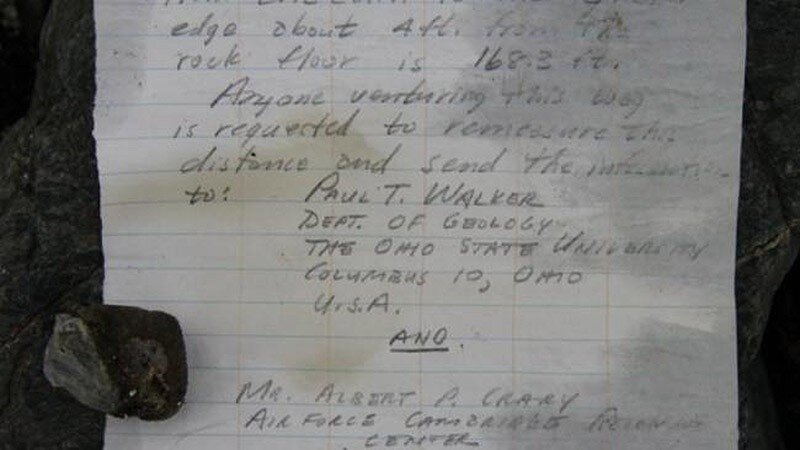 edge about 4 ft. from the
rock floor is 168.3 ft.
Anyone venturing this way
is requested to remeasure this
distance and send the information
to: PAUL T. WALKER
DEPT. OF GEOLOGY
THE OHIO STATE UNIVERSITY
COLUMBUS 10, OHIO
U.S.A.
AND.
MR. ALBERT P. CRARY
AIR FORCE CAMBRIDGE
CENTER